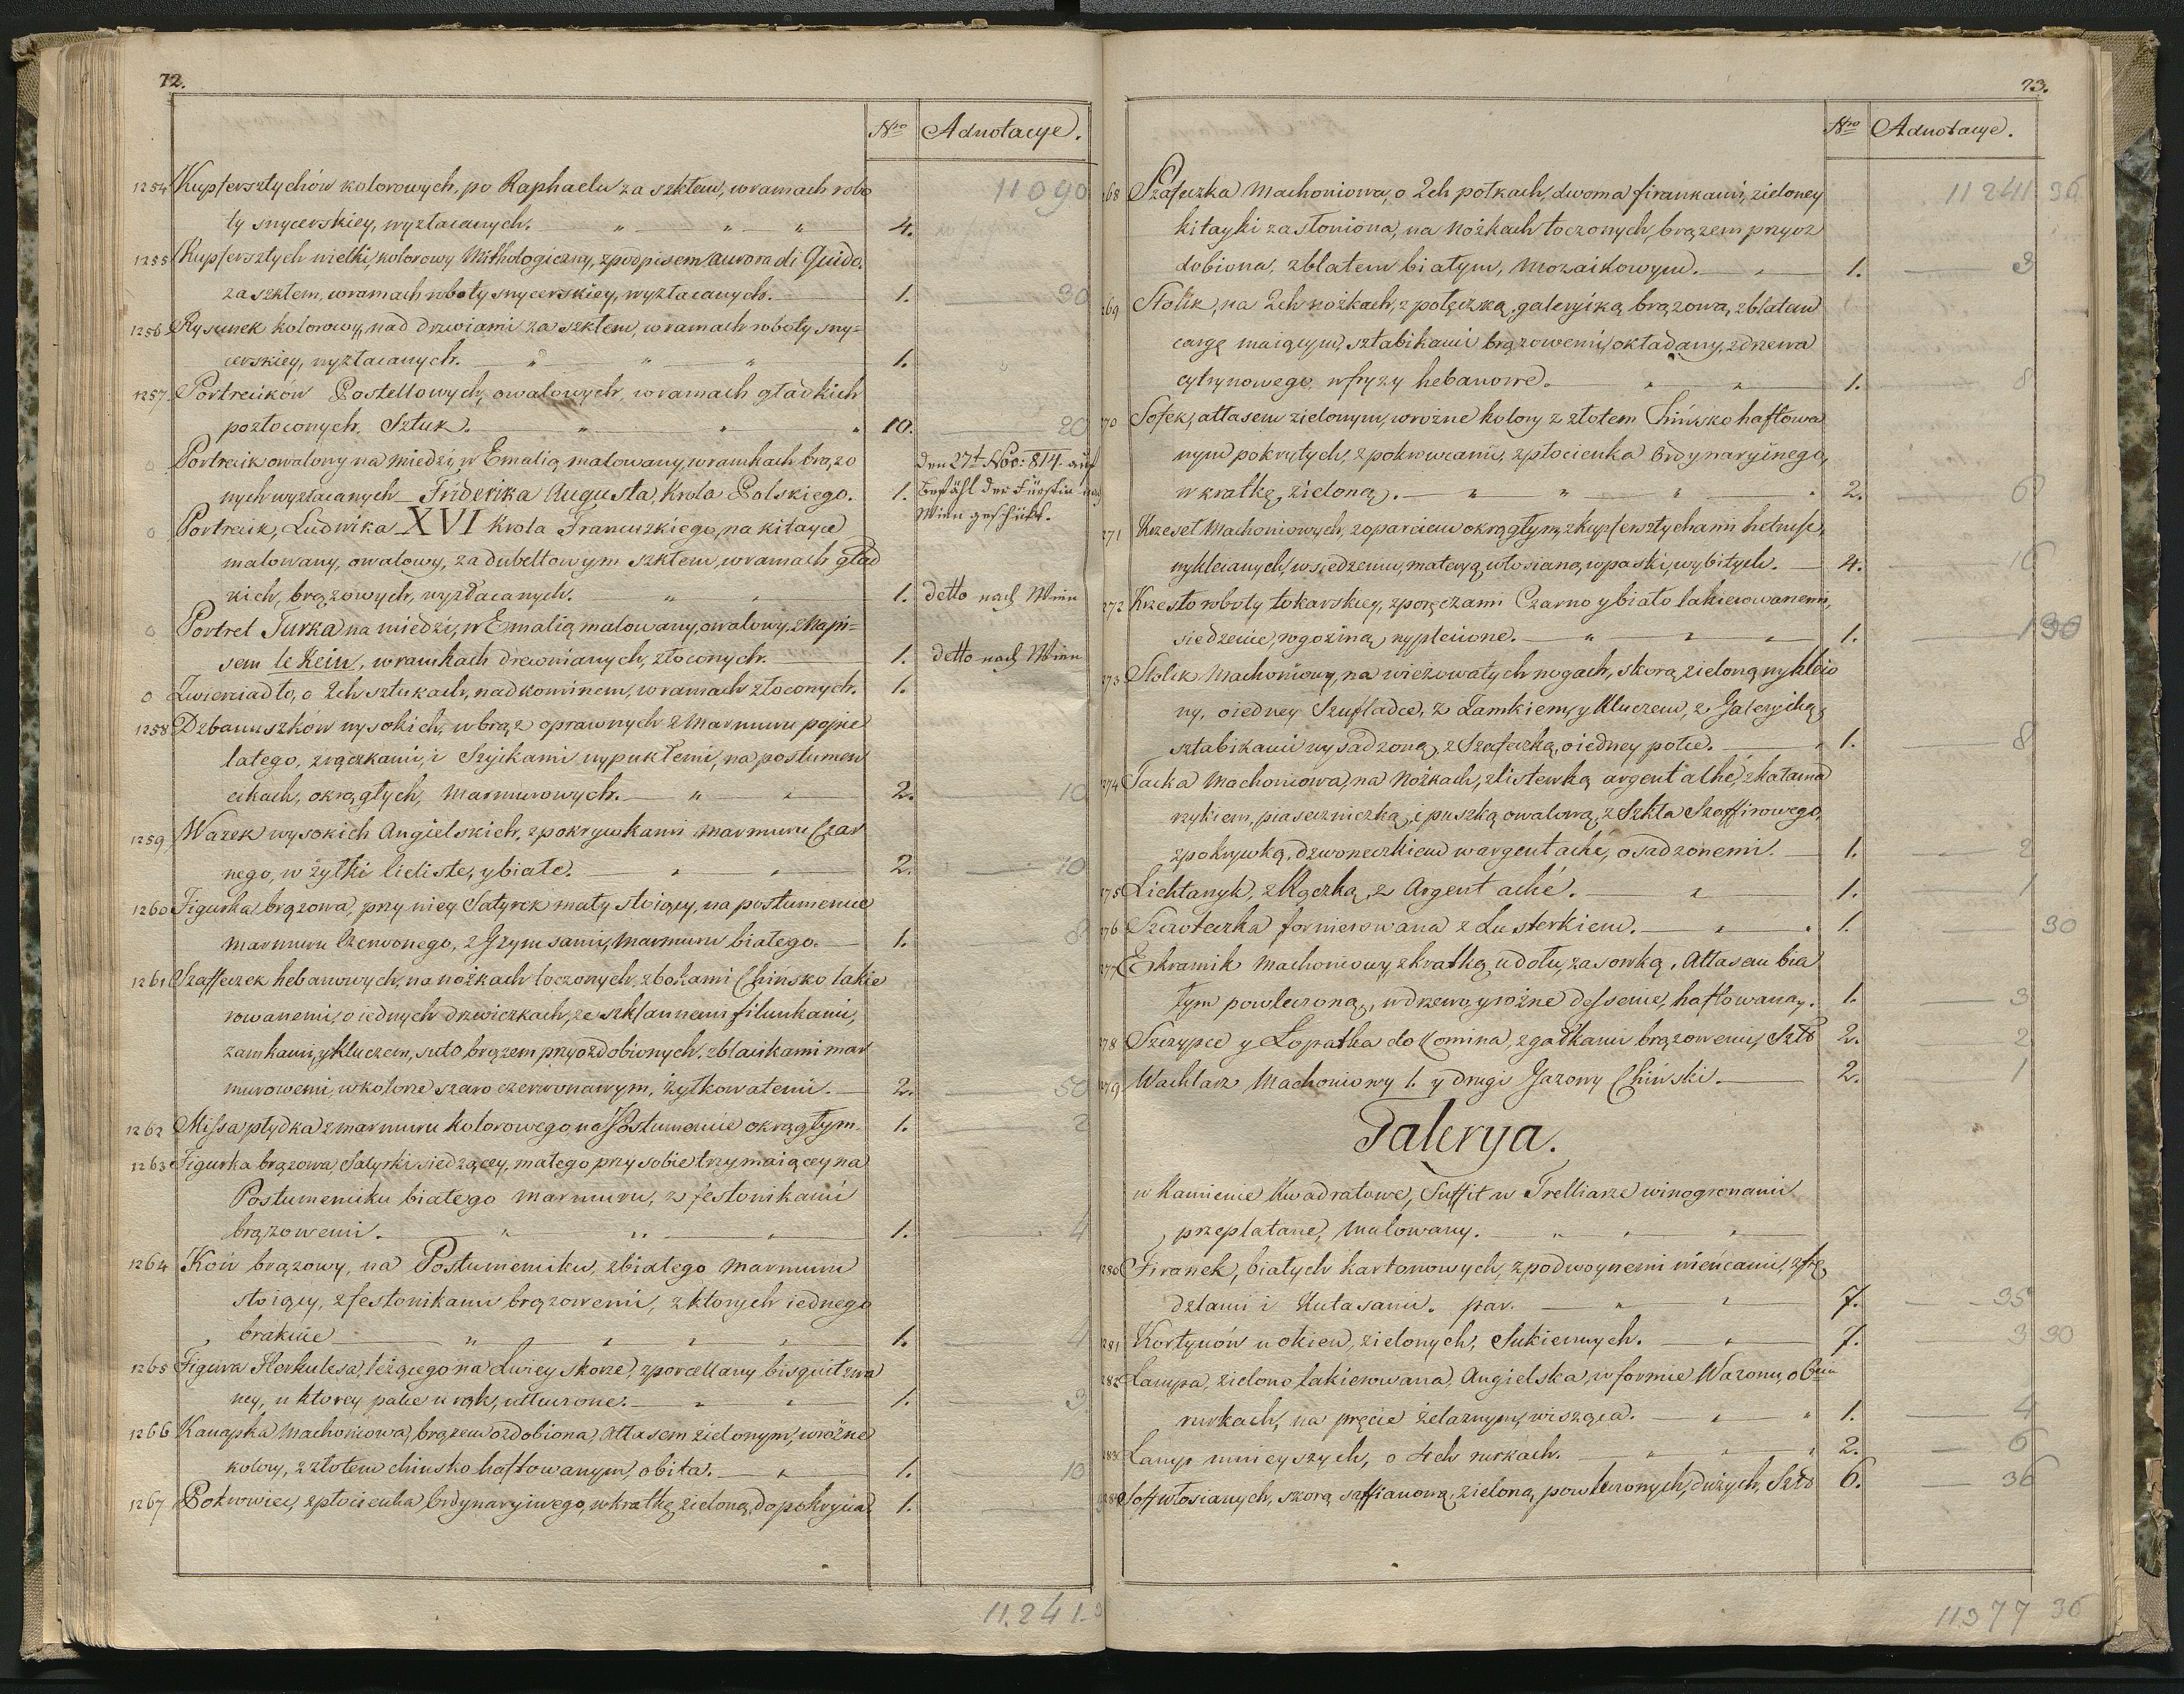 72.
Nro Adnotacye.
1254 Kupfersztychów kolorowych, po Raphaelu za szkłem, w ramach robo 11090
ty snycerskiey, wyzłacanych. " " " 4.
1255 Kupfersztych wielki, kolorowy Mithologiczny, z podpisem Aurora di Guido.
za szkłem, w ramach roboty snycerskiey, wyzłacanych. 1. 30
1256 Rysunek kolorowy, nad drzwiami za szkłem, w ramach roboty sny=
cerskiey, wyzłacanych. " " " 1.
1257 Portrecików Pastellowych, owalowych, w ramach gładkich
pozłoconych. Sztuk. " " " 10. 20
o Portrecik owalowy na miedzi, w Emalią malowany, w ramkach brązo den 27t Nov: 814. auf
wych wyzłacanych Friderika Augusta, Krola Polskiego. 1. Befähl der Fürstin nach
o Portrecik, Ludwika XVI Krola Francuzkiego, na kitayce Wien geschückt.
malowany, owalowy, za dubeltowym szkłem, w ramach gład
kich, brązowych, wyzłacanych. " " 1. detto nach Wien
o Portret Turka na miedzi, w Emalią malowany, owalowy, z Napi=
sem le Kein, w ramkach drewnianych, złoconych. 1. detto nach Wien
o Zwierciadło, o 2ch sztukach, nad kominem, w ramach złoconych. 1.
1258 Dzbanuszków wysokich, w brąz oprawnych z Marmuru popie
latego, z rączkami, i Szyikami wypukłemi, na postumen
cikach, okrągłych, Marmurowych. " " 2. 10
1259 Wazek wysokich Angielskich, z pokrywkami marmuru Czar
nego, w żyłki liciste, y białe. " " 2. 10
1260 Figurka brązowa, przy niey Satyrek mały stoiący, na postumencie
marmuru Czerwonego, z Gzymsami, Marmuru białego. 1. 8
1261 Szaffeczek hebanowych, na nożkach toczonych, z bokami Chińsko lakie
rowanemi, o iednych drzwiczkach, ze szklannemi filunkami,
zamkami, y Kluczem, suto brązem przyozdobionych, z blacikami mar
murowemi, w kolorze szaro czerwonawym, żyłkowatemi. 2. 50
1262 Missa płydka z marmuru kolorowego, na Postumencie okrągłym. 1. 2
1263 Figurka brązowa, Satyrki siedzącey, małego przy sobie trzymaiącey na
Postumenciku białego marmuru, z festonikami
brązowemi. " " " 1. 4
1264 Koń brązowy, na Postumenciku, z białego Marmuru
stoiący, z festonikami brązowemi, z ktorych iednego
brakuie " " " " " 1. 4
1265 Figura Herkulesa, leżącego na Lwiey skorze, z porcellany bisquit zwa
ney, u ktorey palce u ręk, utłuczone. " " 1. 3
1266 Kanapka Machoniowa, brązem ozdobiona, Attasem zielonym, w różne
kolory, z złotem chinsko haftowanym, obita. " 1. 10
1267 Pokrowiec, z płocienka Ordynaryinego, w kratkę zieloną, do pokrycia. 1.
11.241.3
73.
Nro Adnotacye.
268 Szafeczka Machoniowa, o 2ch połkach, dwoma firankami, zieloney 11241 36
kitayki zasłoniona, na nożkach toczonych, brązem przyoz
dobiona, z blatem białym, Mozaikowym. " 1. 3
269 Stolik, na 2ch nożkach, z połączką, galeryiką brązową, z blatem
cargę maiącym, sztabikami brązowemi, okładany, z drzewa
cytrynowego, w fryzy hebanowe. " " 1. 8
270 Sofek, attasem zielonym, w różne kolory z złotem Chińsko haftowa
nym pokrytych, z pokrowcami, z płocienka Ordynaryinego,
w kratkę, zieloną. " " " " 2. 6
271 Krzeseł Machoniowych, z oparciem okrągłym, z kupfersztychami hetrusk,
wyklcianych, w siedzeniu, materyą włosianą, w paski, wybitych. 4. 16
272 Krzesło roboty tokarskiey, z poręczami Czarno y biało lakierowanemi,
siedzenie, rogożiną, wyplecione. " " " 1. 1 30
273 Stolik Machoniowy, na wieżowatych nogach, skorą zieloną wyklcio
ny, o iedney Szufladce, z Zamkiem, y Kluczem, z Galeryiką,
sztabikami wysadzoną, z Szafeczką, o iedney połce. " 1. 8
274 Tacka Machoniowa, na Nożkach, z listewką argent aché, z kałama
rzykiem, piaseczniczką, i puszką owalową, z Szkła Szaffirowego,
z pokrywką, dzwoneczkiem w argent aché, osadzonemi. 1. 2
275 Lichtarzyk, z Rączką, z Argent aché. " 1. 1
276 Szczoteczka fornierowana z Lusterkiem. " " 1. 30
277 Ekranik Machoniowy, z kratką, u dołu, zasowką, Attasem bia
łym powleczoną, w drzewo, y rożne dessenie, haftowaną. 1. 3
278 Szczypce y Łopatka do Komina, z gałkami brązowemi, Sztk 2. 2
279 Wachlarz Machoniowy 1. y drugi Gazowy Chiński. 2. 1
Galerya.
w kamienie Kwadratowe, Suffit w Trelliarze winogronami
przeplatane, Malowany. " " "
280 Firanek, białych kartonowych, z podwoynemi wieńcami, z frę
dzlami i Kutasami. par. " " 7. 35
281 Kortynów u okien, zielonych, Sukiennych. " 7. 3 30
282 Lampa, zielono lakierowana, Angielska, w formie Wazonu, o 6ciu
rurkach, na pręcie żelaznym, wisząca. " " 1. 4
283 Lamp mnieyszych, o 4ch rurkach. " " " 2. 6
284 Sof włosianych, skorą saffianową, zieloną, powleczonych, dużych, Sztk 6. 36
11377 36